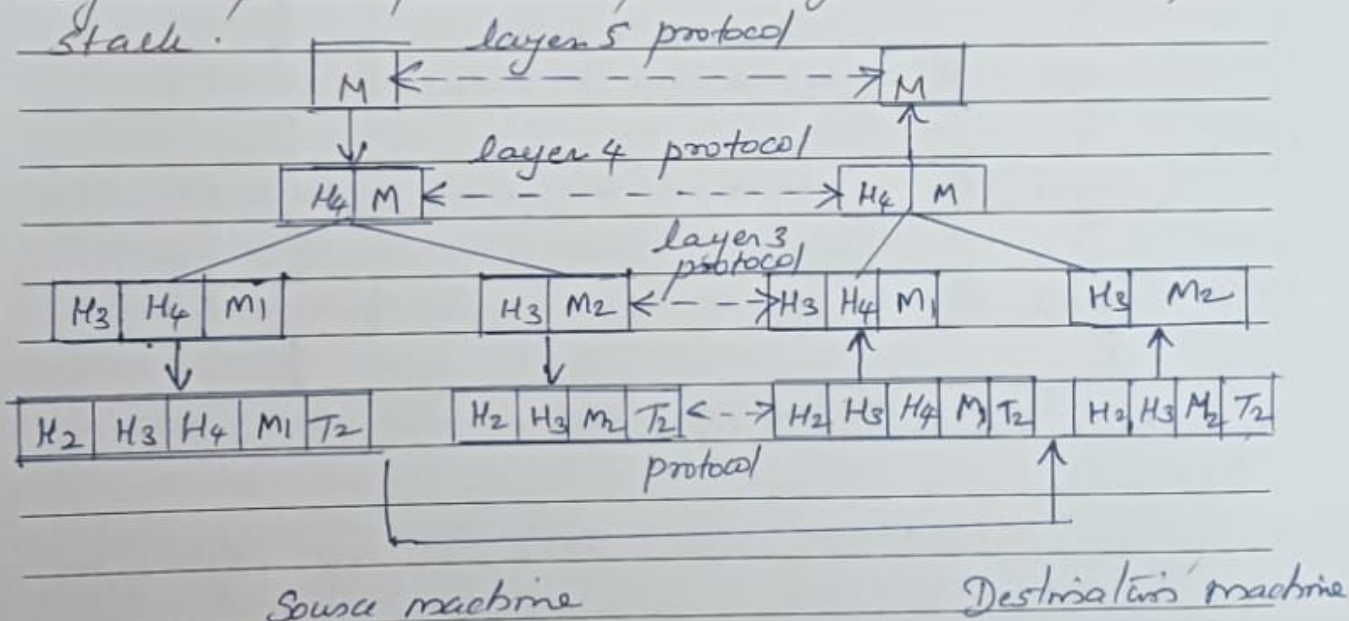 Stack.
layer 5 protocol
M M
layer 4 protocol
H4 M H4 M
layer 3
protocol
H3 H4 M1 H3 M2 H3 H4 M1 H3 M2
H2 H3 H4 M1 T2 H2 H3 M2 T2 H2 H3 H4 M1 T2 H2 H3 M2 T2
protocol
Source machine Destination machine